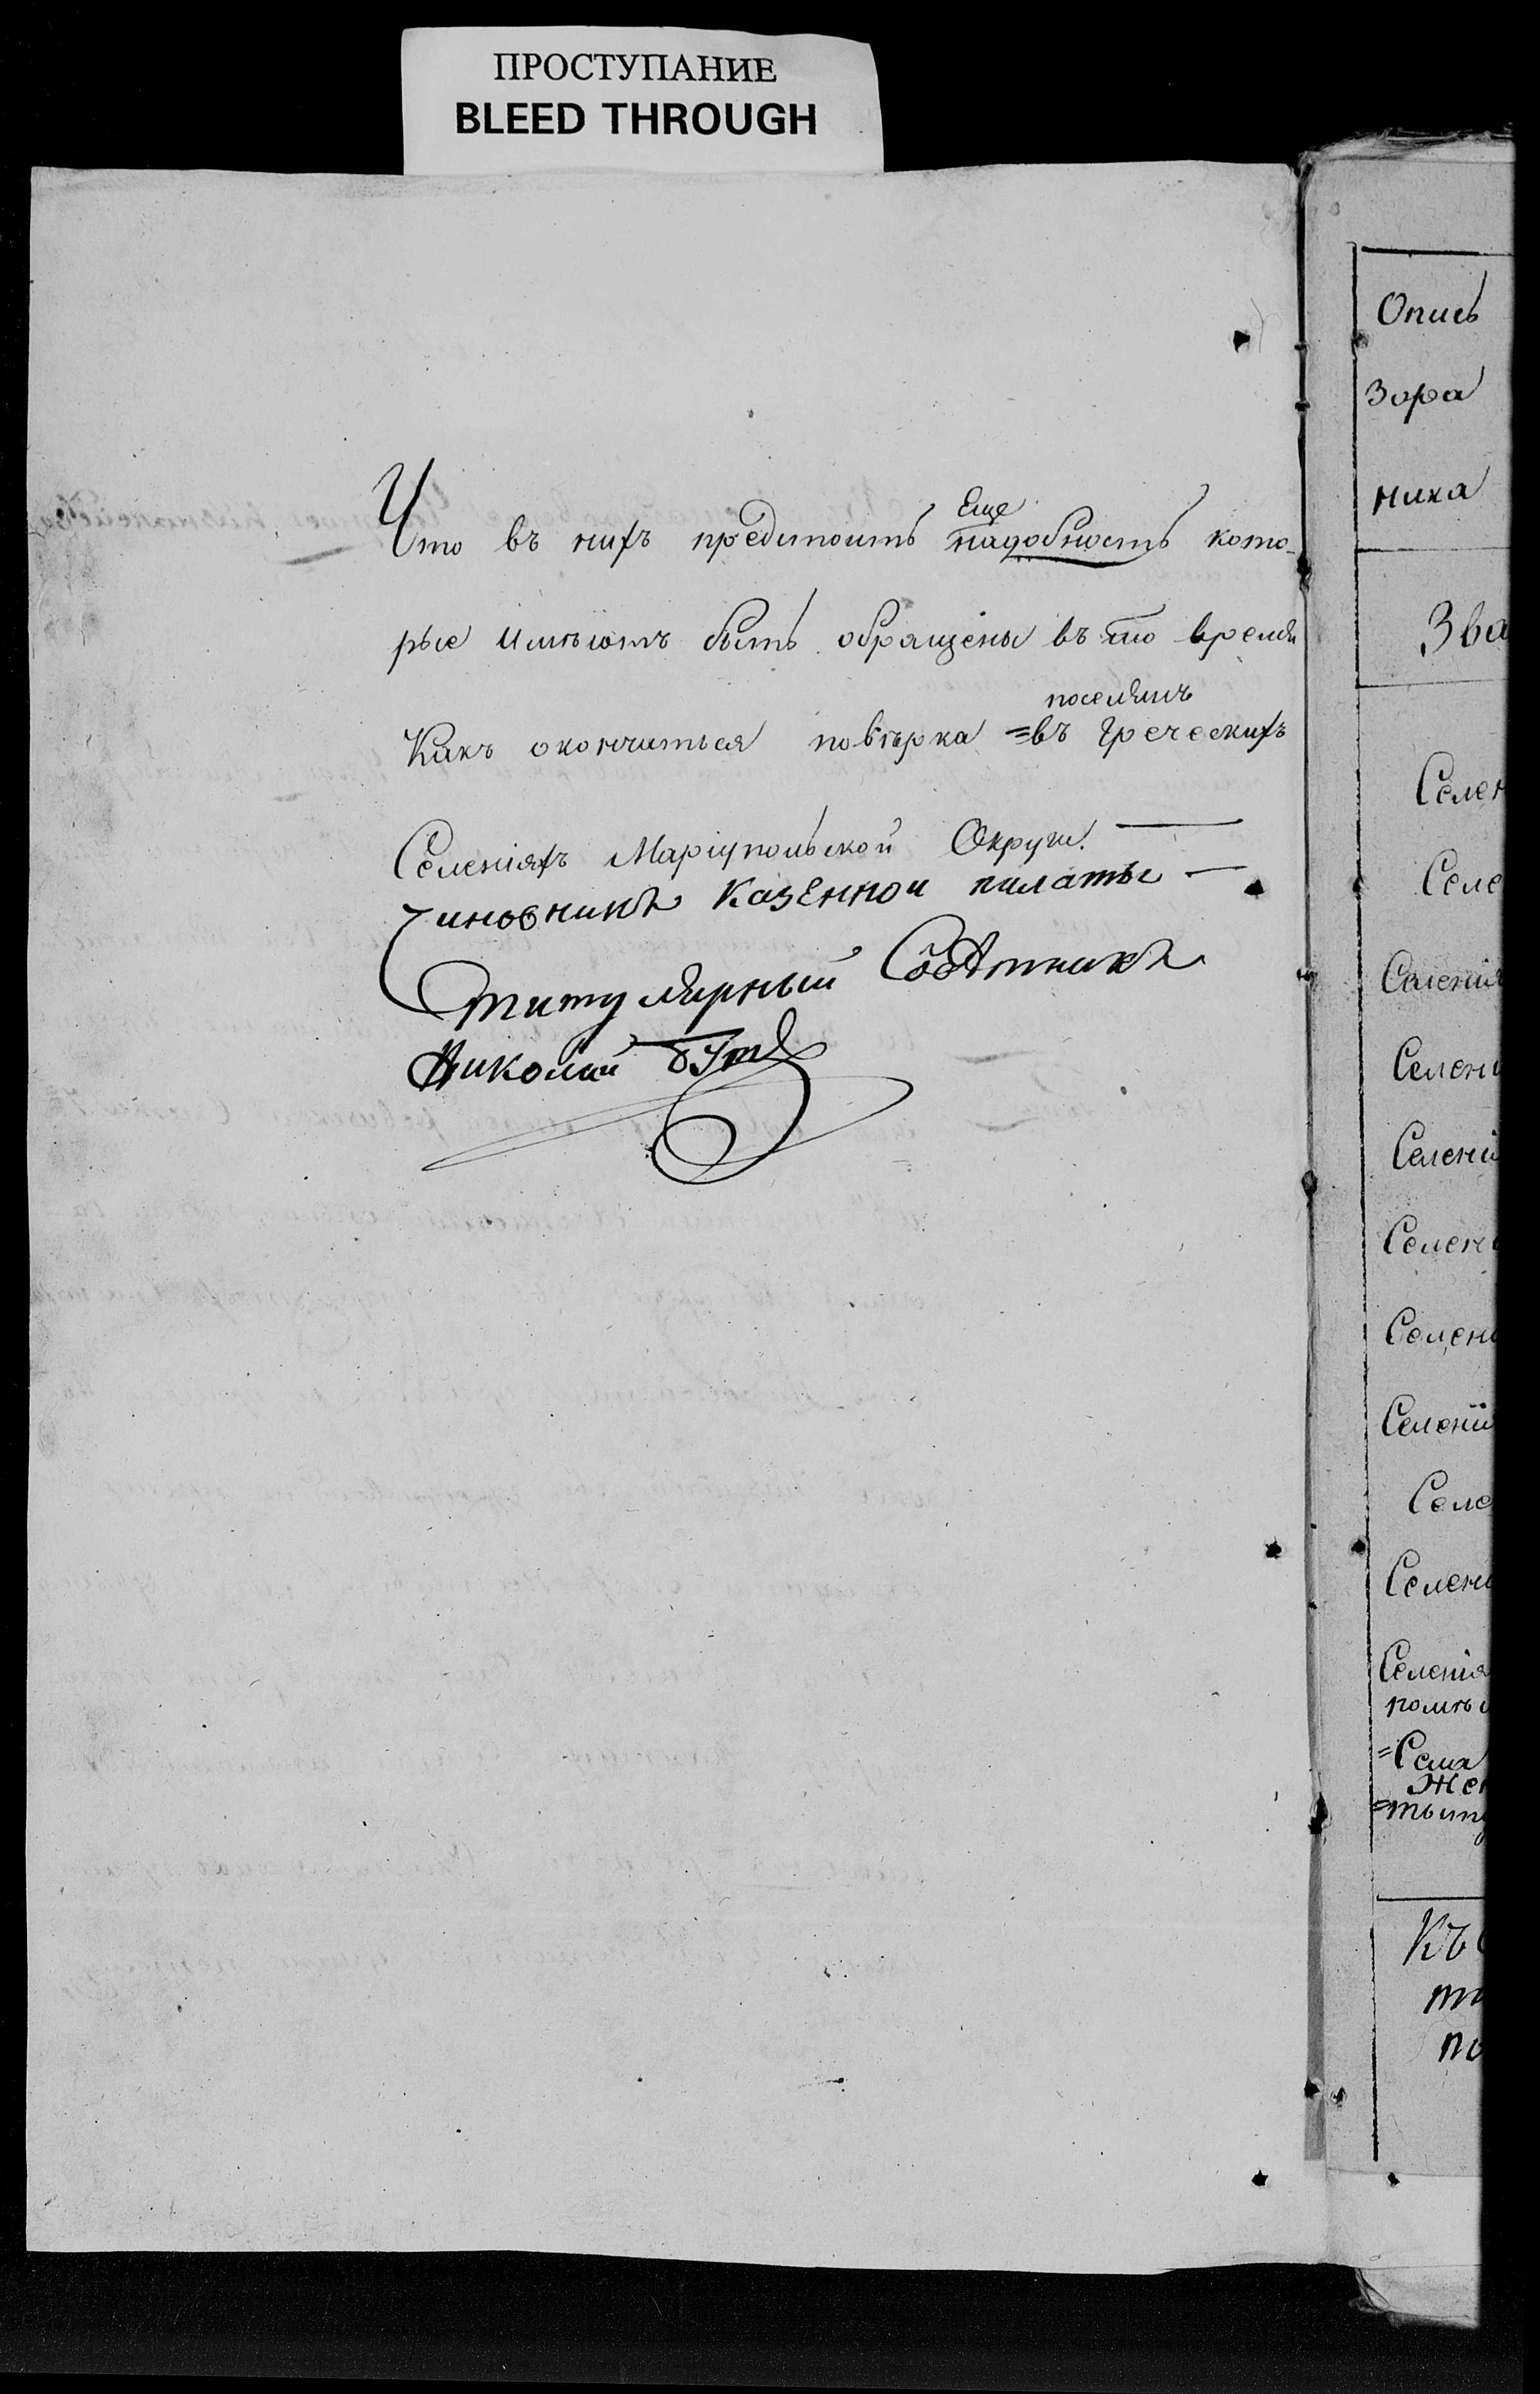 ПРОСТУПАНИЕ
BLEED THROUGH
Что въ нихъ предстоитъ Еще надобность кото-
рые имѣютъ быть обращены въ то время
Какъ окончиться повѣрка =поселянъ въ Греческихъ
Селеніяхъ Маріупольской Округи.
Чиновникъ Казенной палаты
титулярный Совѣтникъ
Николай
Опись
зора
ника
Зва
Селен
Селе
Селенія
Селени
Селени
Селени
Селени
Селенія
Селе
Селени
Селенія
помѣщ
=Сели
жен
Къ
та
по